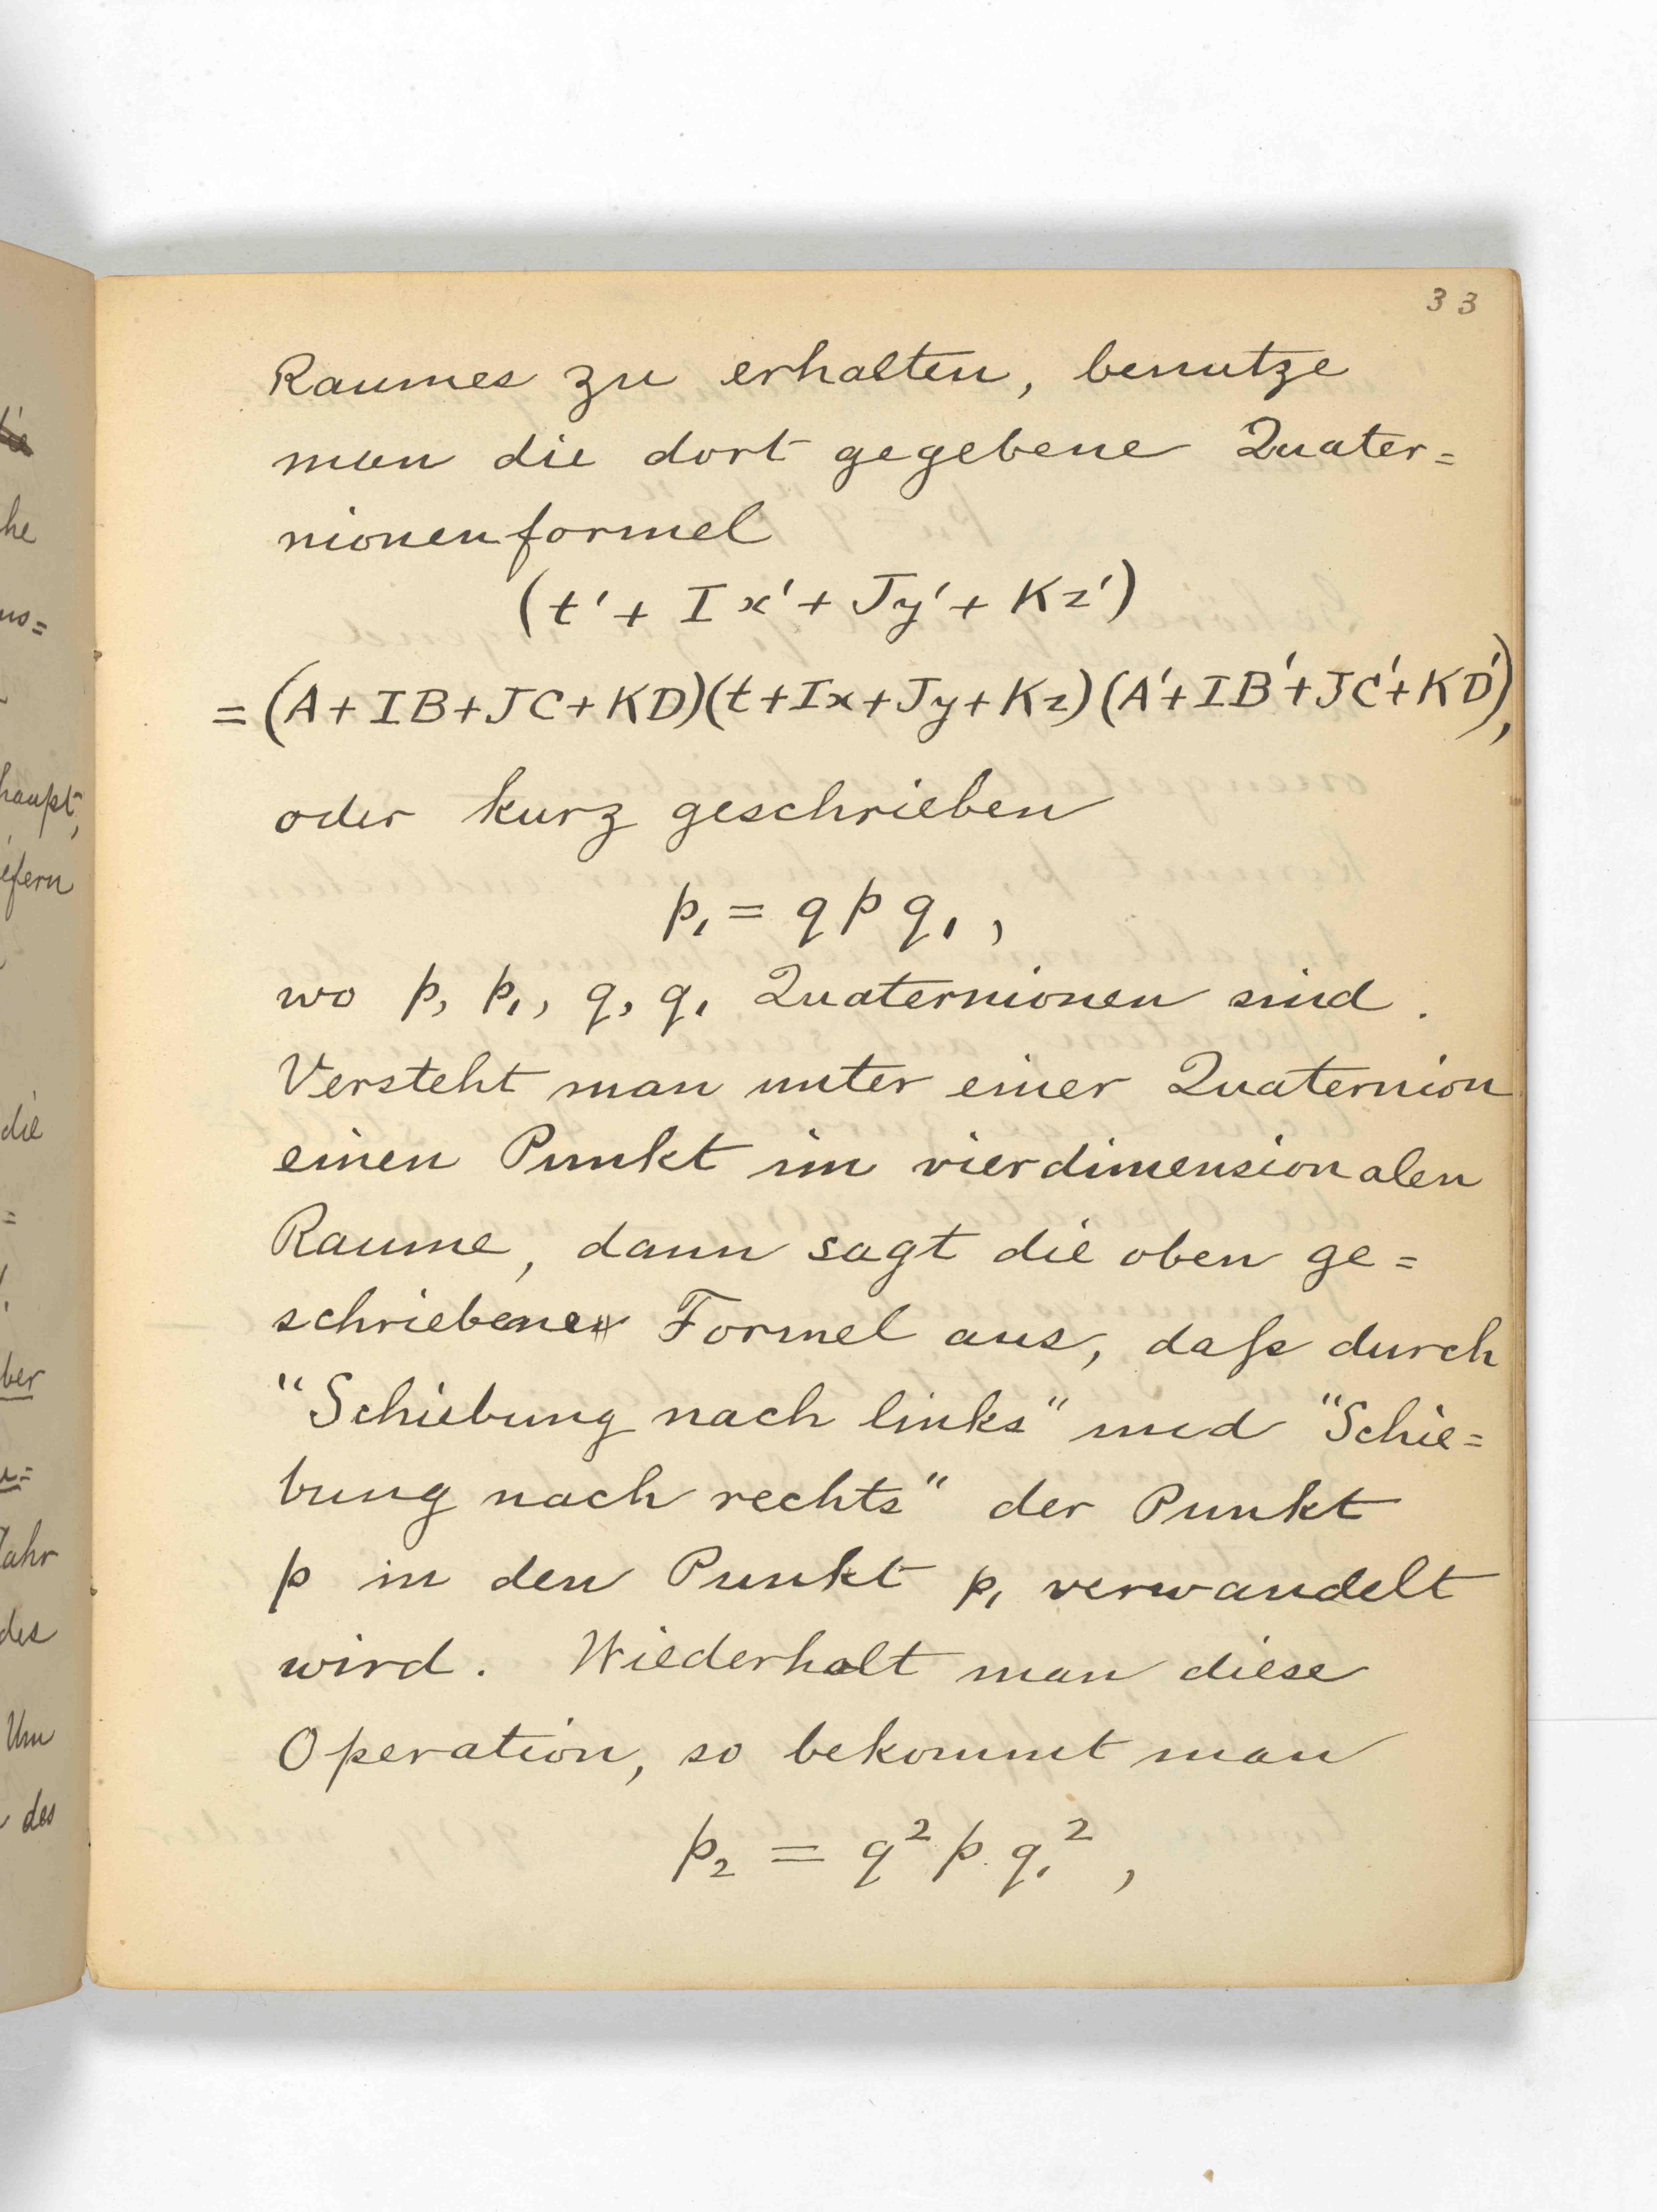 33
Raumes zu erhalten, benutze
man die dort gegebene Quater=
nionenformel
(t' + Ix' + Jy' + Kz')
= (A + IB + JC + KD)(t + Ix + Jy + Kz)(A' + IB' + JC' + KD'),
oder kurz geschrieben
p₁ = q p q₁,
wo p, p₁, q, q₁ Quaternionen sind.
Versteht man unter einer Quaternion
einen Punkt im vierdimensionalen
Raume, dann sagt die oben ge=
schriebene Formel aus, daß durch
"Schiebung nach links" und "Schie=
bung nach rechts" der Punkt
p in den Punkt p₁ verwandelt
wird. Wiederholt man diese
Operation, so bekommt man
p₂ = q² p q₁²,
he
us=
haupt,
iefern
die
=
ber
Jahr
des
Um
des